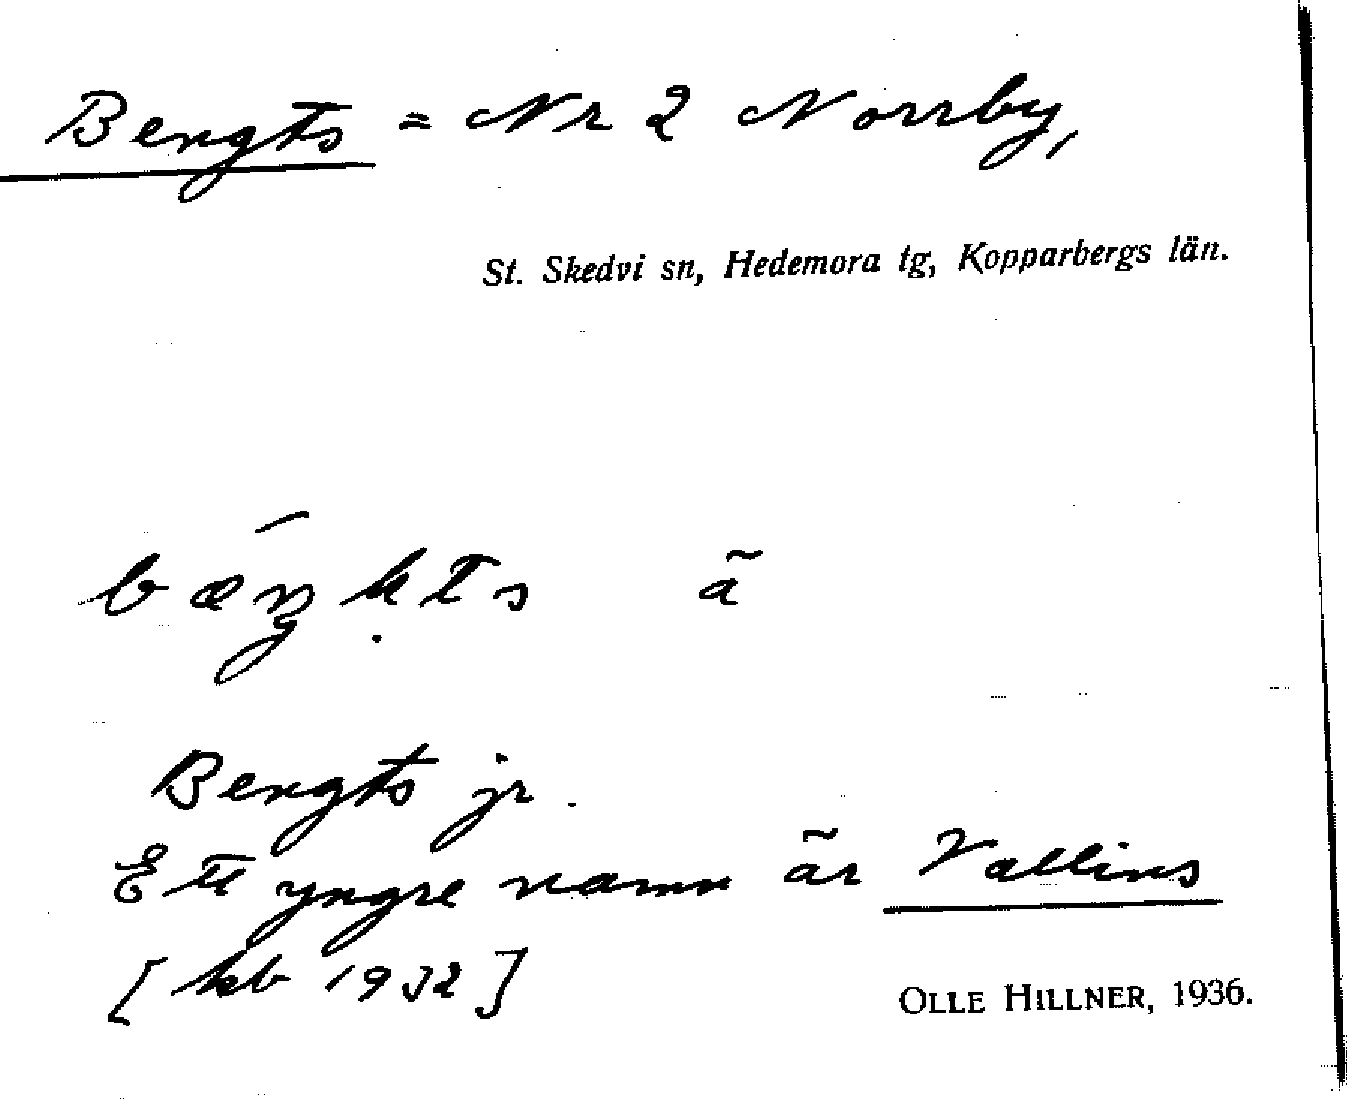 Bengts = Nr 2 Norrby,
St. Skedvi sn, Hedemora tg, Kopparbergs län.
bæŋ́ḳts ä
Bengts jr.
Ett yngre namn är Vallins
[kb 1932]
OLLE HILLNER, 1936.